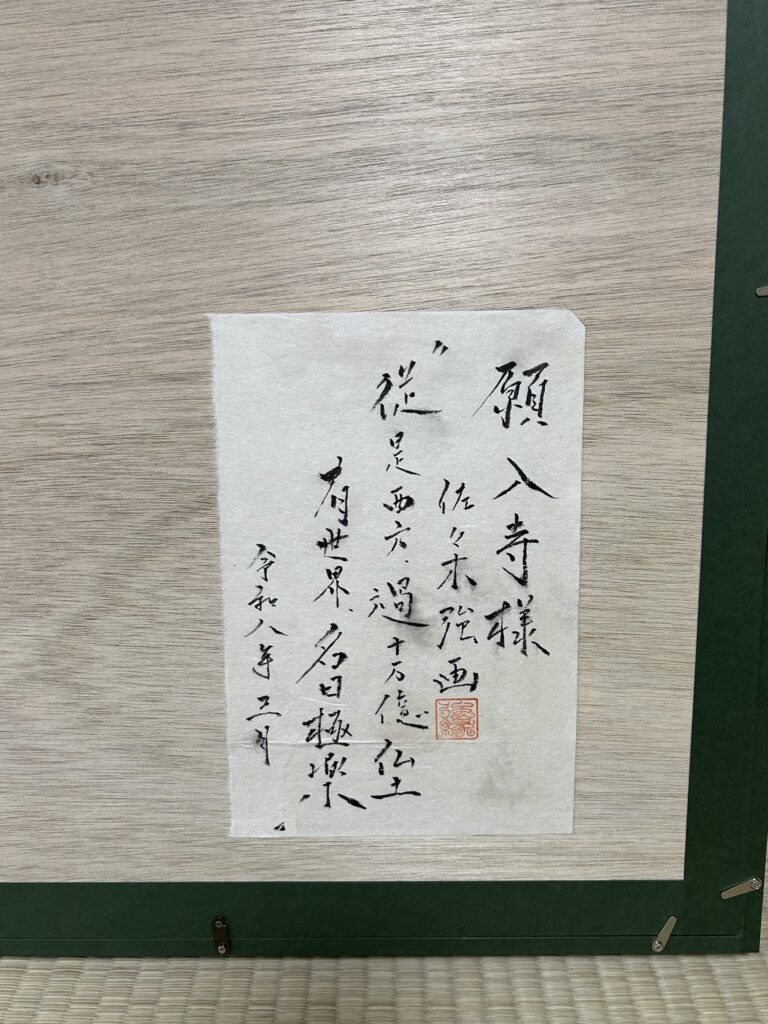 願入寺様
佐々木強画
〃従是西方、過十万億仏土
有世界、名曰極楽〃
令和八年三月